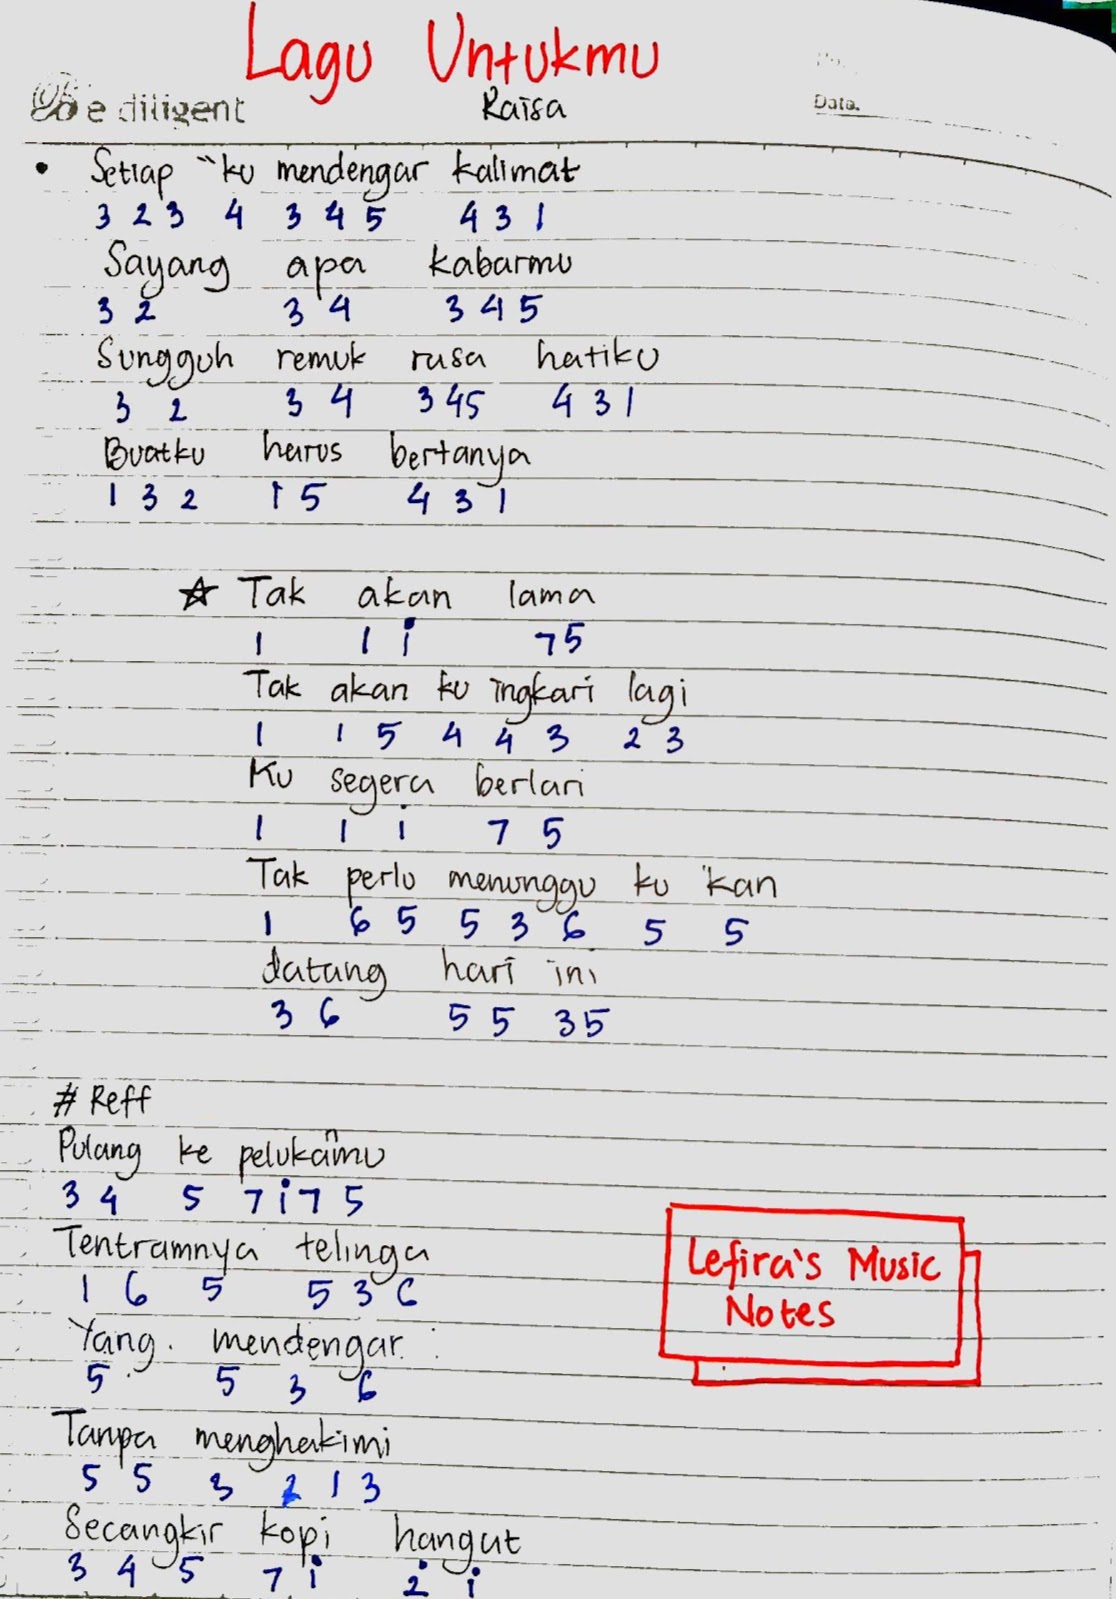 Lagu Untukmu
Be diligent
Raisa
No.
Date.
• Setiap "ku mendengar kalimat
3 2 3 4 3 4 5 4 3 1
Sayang apa kabarmu
3 2 3 4 3 4 5
Sungguh remuk rasa hatiku
3 2 3 4 3 4 5 4 3 1
Buatku harus bertanya
1 3 2 1 5 4 3 1
☆ Tak akan lama
1 1 i 7 5
Tak akan ku ingkari lagi
1 1 5 4 4 3 2 3
Ku segera berlari
1 1 i 7 5
Tak perlu menunggu ku 'kan
1 6 5 5 3 6 5 5
datang hari ini
3 6 5 5 3 5
# Reff
Pulang ke pelukanmu
3 4 5 7 i 7 5
Tentramnya telinga
1 6 5 5 3 6
Yang mendengar
5 5 3 6
Tanpa menghakimi
5 5 3 2 1 3
Secangkir kopi hangat
3 4 5 7 i 2̇ i
Lefira's Music
Notes